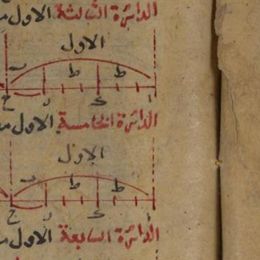 الدائرة الثالثة الاول
الاول
ط ط
ج د ا
الدائرة الخامسة الاول
الاول
ط ط
ج د ا
الدائرة السابعة الاول